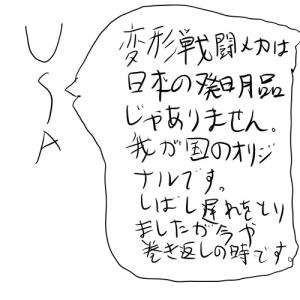 USA
変形戦闘メカは
日本の発明品
じゃありません。
我が国のオリジ
ナルです。
しばし遅れをとり
ましたが今や
巻き返しの時です。